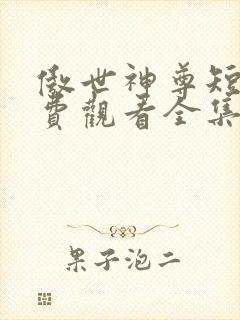 傲世神尊短
費觀看全集
果子泡二